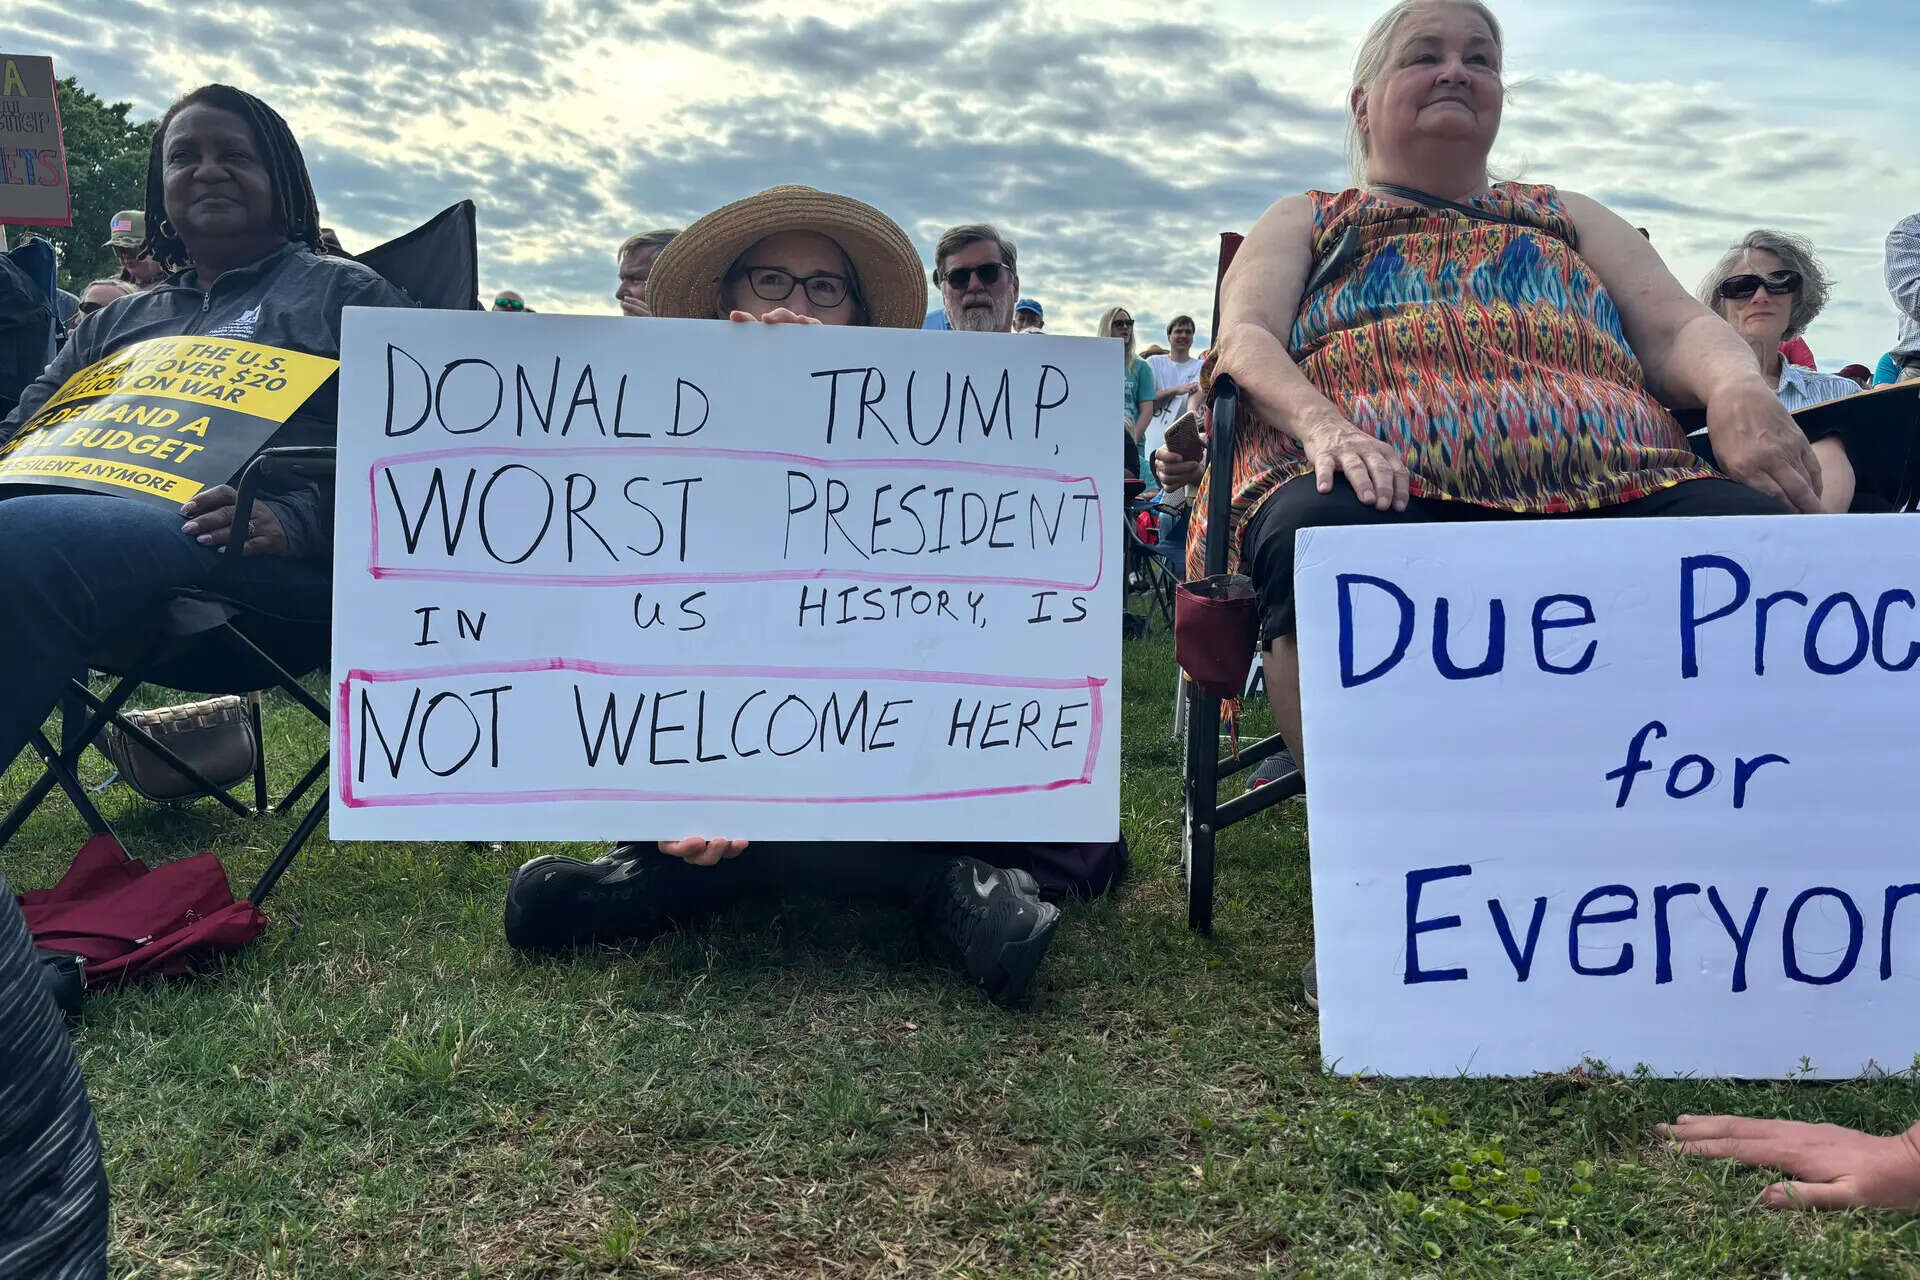 A
ETS
THE U.S.
OVER $20
ON WAR
DEMAND A
BUDGET
SILENT ANYMORE
DONALD TRUMP,
WORST PRESIDENT
IN US HISTORY, IS
NOT WELCOME HERE
Due Proc
for
Everyon